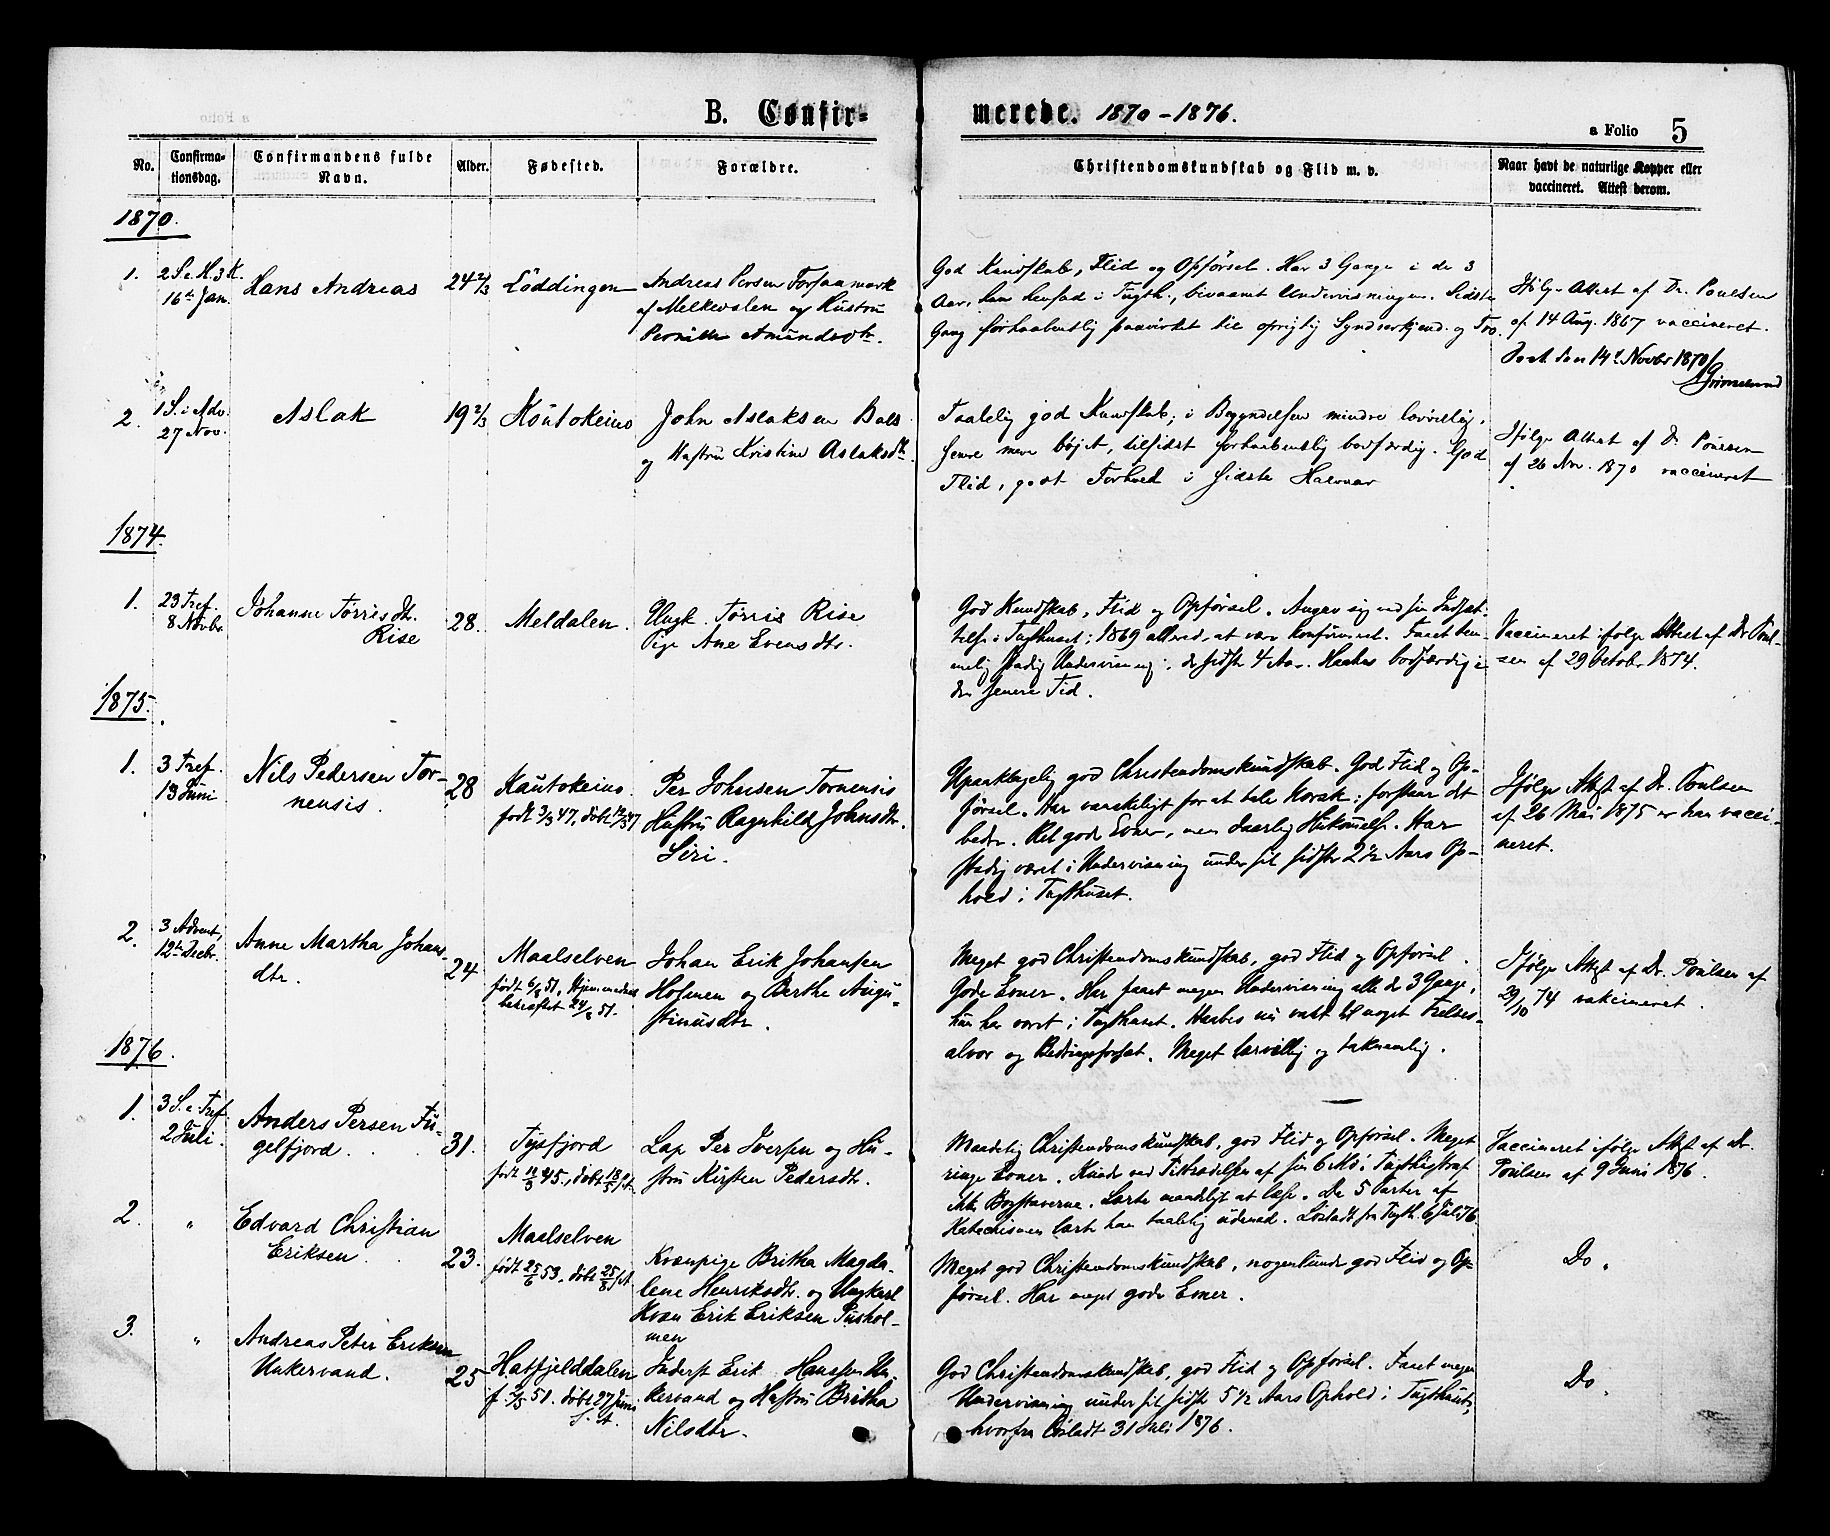 B. Confir-
merede. 1870-1876.
a Folio 5
No.
Confirma-
tionsdag.
Confirmandens fulde
Navn.
Alder.
Fødested.
Forældre.
Christendomskundskab og Flid m. v.
Naar havt de naturlige Kopper eller
vaccineret. Attest derom.
1870.
1.
2 S. e. H. 3 K.
16de Jan.
Hans Andreas
24 2/3
Löddingen
Andreas Persen Forsaamark
af Melkedalen og Hustru
Pernille Amundsdtr.
God Kundskab, Flid og Opførsel. Har 3 Gange i de 3
Aar, han hensad i Tugth., bivaanet Undervisningen. Sidste
Gang forhaabentlig paavirket til oprigtig Synderkjend. og Tro.
Ifølge Attest af Dr. Poulsen
af 14 Aug. 1867 vaccineret.
den 14de Novbr 1870
2.
1 S. i Adv.
27 Nov.
Aslak
19 2/3
Koutokeino
John Aslaksen Bals
og Hustru Kristine Aslaksdtr.
Taalelig god Kundskab; i Begyndelsen mindre lærvillig,
senere mere bøjet, tilsidst forhaabentlig bodfærdig. God
Flid, godt Forhold i sidste Halvaar
Ifølge Attest af Dr Poulsen
af 26 Nov. 1870 vaccineret
1874.
1.
23 Tref.
8 Novbr.
Johanne Tørrisdtr.
Rise
28.
Meldalen.
Ungk. Tørris Rise
Pige Ane Evensdtr.
God Kundskab, Flid og Opførsel. Angav sig ved sin Indsæt-
telse i Tugthuset i 1869 allered. at være konfirmeret. Faaet tem-
melig stadig Undervisning i de sidste 4 Aar. Haabes bodfærdig i
den senere Tid.
Vaccineret ifølge Attest af Dr Poul-
sen af 29 Octobr 1874.
1875.
1.
3 Tref.
13 Juni
Nils Pedersen Tor-
nensis.
28
Kautokeino.
født 3/3 47, døbt 47
Per Johnsen Tornensis
Hustru Ragnhild Johnsdtr.
Siri.
Upaaklagelig god Christendomskundskab. God Flid og Op-
førsel. Har vanskeligt for at tale Norsk; forstaar det
bedre. Ret gode Evner, men daarlig Hukommelse. Har
stadig været i Undervisning under sit sidste 2 1/2 Aars Op-
hold i Tugthuset.
Ifølge Attest af Dr. Poulsen
af 26 Mai 1875 er han vacci-
neret.
2.
3 Advent,
12te Decbr.
Anne Martha Johans-
dtr.
24
Maalselven
født 6/8 51, Hjemmedaab
bekræftet 24/8 51.
Johan Erik Johansen
Holmen og Berthe Augu-
stinusdtr.
Meget god Christendomskundskab, god Flid og Opførsel.
Gode Evner. Har faaet megen Undervisning alle de 3 Gange,
hun har været i Tugthuset. Haabes nu vakt til noget Frelses-
alvor og Bedringsforsæt. Meget lærvillig og taknemlig.
Ifølge Attest af Dr. Poulsen af
29/10 74 vakcineret.
1876.
1.
3 S. e. Tref.
2 Juli.
Anders Persen Fu-
gelfjord.
31.
Tysfjord
født 11/3 45., døbt 18/5 s. A.
Lap Per Iversen og Hu-
stru Kirsten Pedersdtr.
Maadelig Christendomskundskab, god Flid og Opførsel. Meget
ringe Evner. Kunde ved Tiltrædelsen af sin 6 Md. Tugthusstraf
ikke Bogstaverne. Lærte maadeligt at læse. De 5 Parter af
Katechismen lærte han taalelig udenad. Løsladt fra Tugth. 6 Juli 76
Vaccineret ifølge Attest af Dr
Poulsen af 9 Juni 1876.
2.
"
Edvard Christian
Eriksen.
23.
Maalselven
født 25/6 53, døbt 25/8 s. A.
Kvænpige Britha Magda-
lene Henriksdtr. og Ungkarl
Kvæn Erik Eriksen Pushol-
men
Meget god Christendomskundskab, nogenlunde god Flid og Op-
førsel. Har meget gode Evner.
Do.
3.
"
Andreas Peter Eriksen
Unkervand.
25
Hatfjelddalen
f. 2/5 51. døbt 27 Juni
s. A.
Inderst Erik Hanssen Un-
kervand og Hustru Britha
Nilsdtr.
God Christendomskundskab, god Flid og Opførsel. Faaet megen
Undervisning under sit sidste 5 1/2 Aars Ophold i Tugthuset,
hvorfra løsladt 31 Juli 1876.
Do.